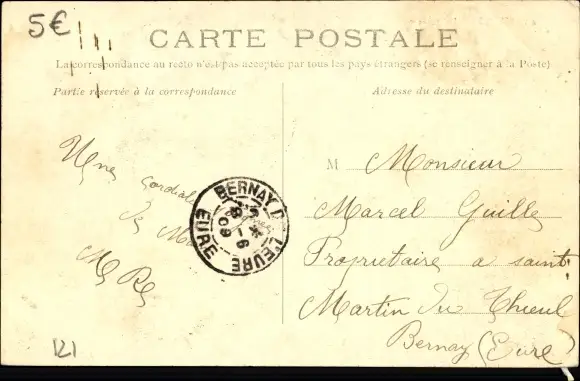 5€
CARTE POSTALE
La correspondance au recto n'est pas acceptée par tous les pays étrangers (se renseigner à la Poste)
Partie réservée à la correspondance
Adresse du destinataire
Une
Cordiale
de
BERNAY DE L'EURE
EURE
8-6
09
M Monsieur
Marcel Guille
Propriétaire a saint
Martin du Thieul
Bernay (Eure)
121